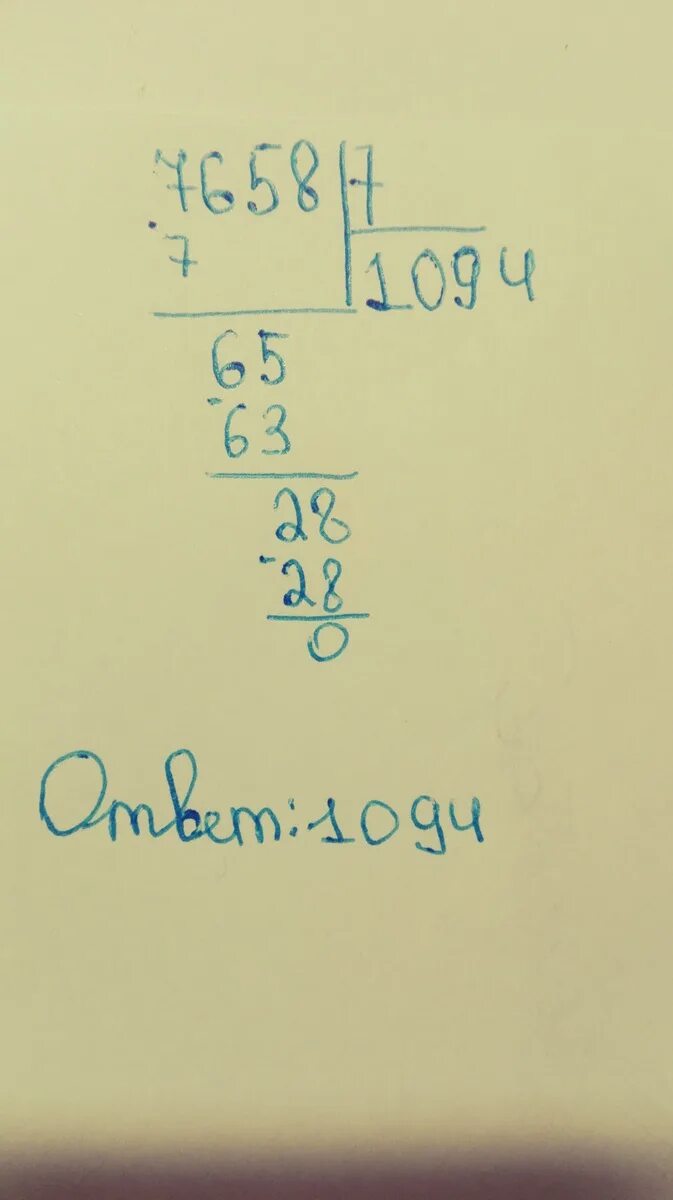 7658 7
7 1094
65
- 63
28
- 28
0
Ответ: 1094